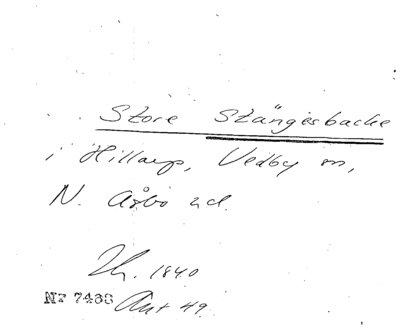 Store Stängesbacke
i Hillarp, Vedby sn,
N. Åsbo hd.
Th. 1840
Nr 7488 Ant 49.